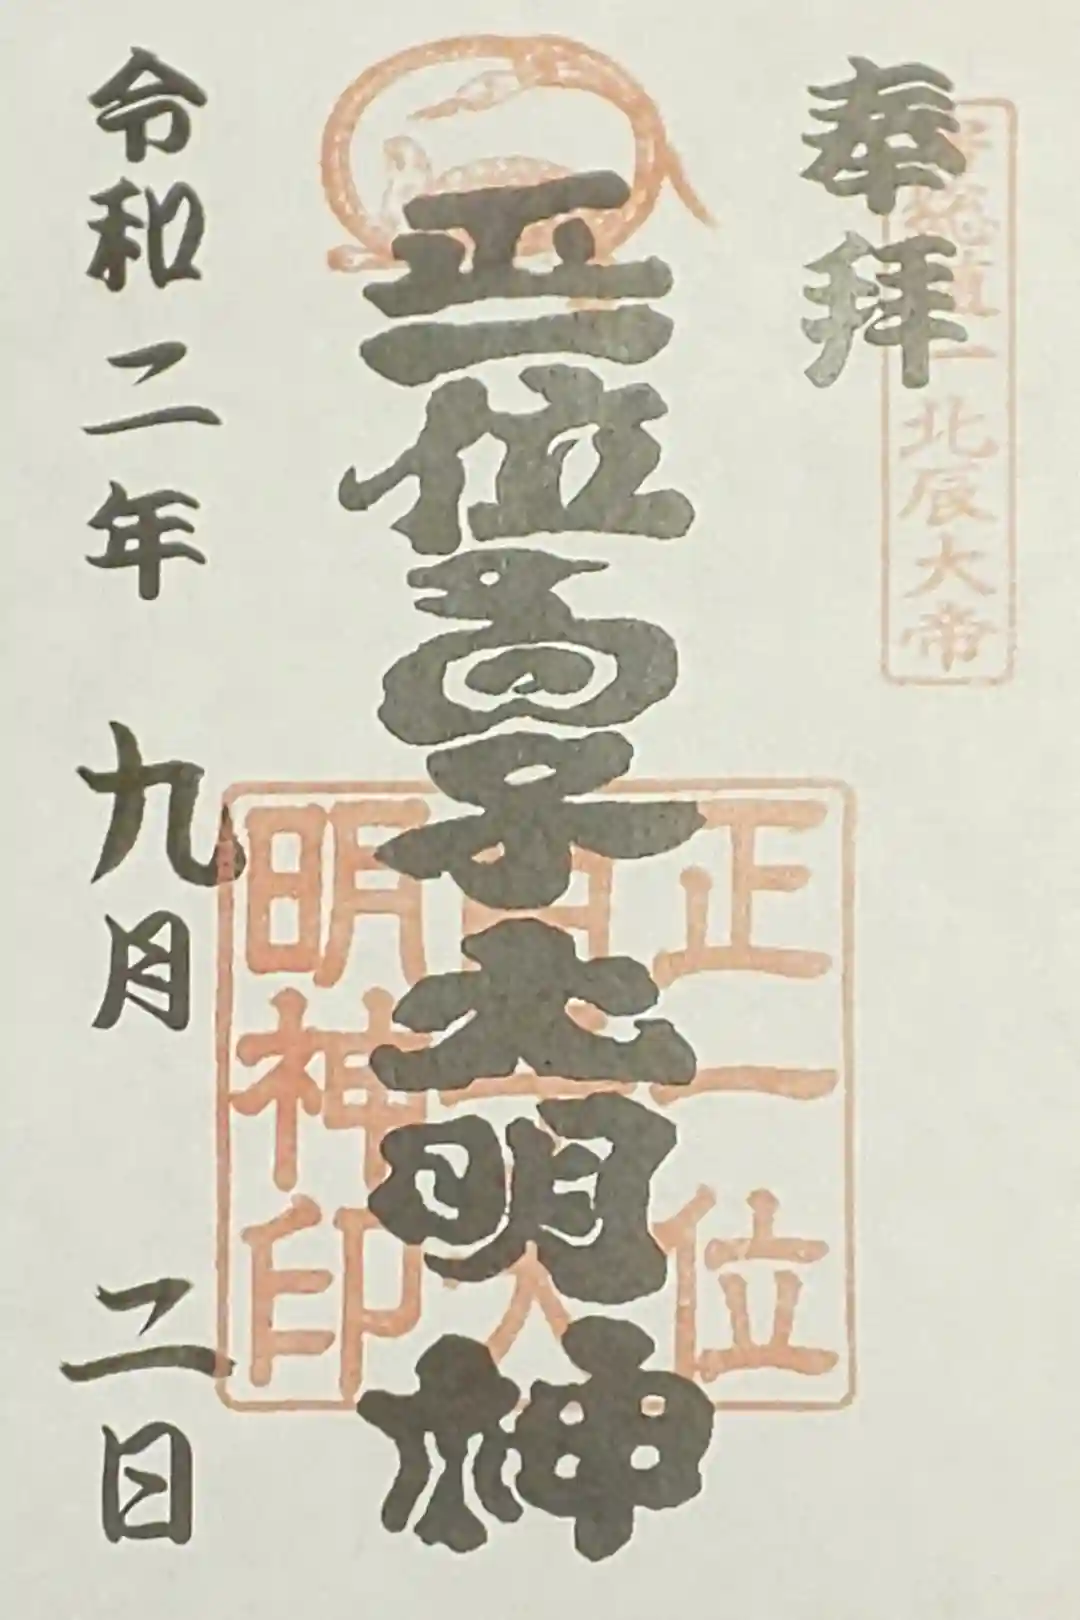 奉拝
北辰大帝
正一位白子大明神
正一位
白子大
明神印
令和二年 九月 二日